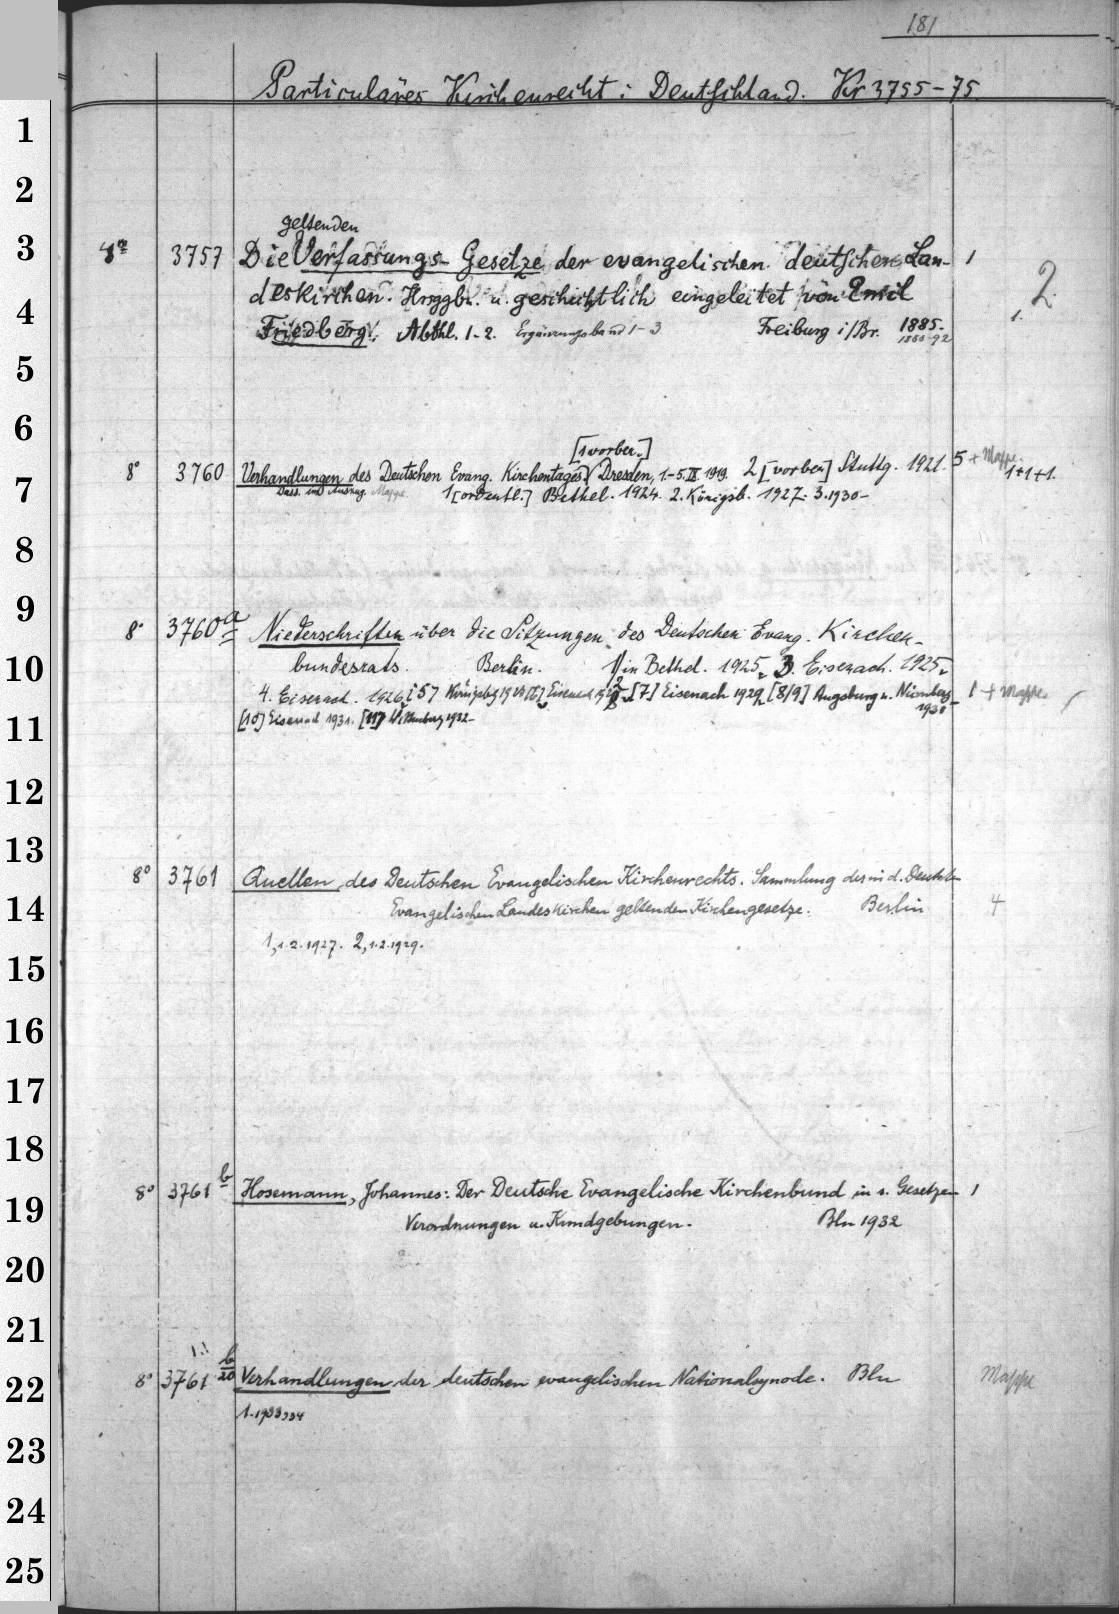 181
Particuläres Kirchenrecht: Deutschland. Kr 3755-75.
1
2
geltenden
3 3757 Die Verfassungs-Gesetze der evangelischen deutschen Lan- 1
4 deskirchen. Hrsggbn. u. geschichtlich eingeleitet von Emil 2
Friedberg. Abthl. 1-2. Ergänzungsband 1-3 Freiburg i/Br. 1885- 1.
5
6
[1 vorber.]
8° 3760 Verhandlungen des Deutschen Evang. Kirchentages. Dresden, 1.-5.IX.1919. 2 [vorber.] Stuttg. 1921. 5 + Mappe.
7 Dass. im Auszug. Mappe 1 [ordentl.] Bethel. 1924. 2. Königsb. 1927. 3. 1930- 1+1+1.
8
9
8° 3760 a Niederschriften über die Sitzungen des Deutschen Evang. Kirchen-
10 bundesrats. Berlin. 1 in Bethel. 1925, 3. Eisenach. 1925,
4. Eisenach. 1926, [5] Königsbg [7] Eisenach 1929, [8/9] Augsburg u. Nürnberg 1 + Mappe
1930
11 [10] Eisenach 1931. [11] Wittenberg 1932-
12
13
8° 3761 Quellen des Deutschen Evangelischen Kirchenrechts. Sammlung der in d. Deutschen
14 Evangelischen Landeskirchen geltenden Kirchengesetze. Berlin 4
1,1.2.1927. 2,1.2.1929.
15
16
17
18
8° 3761 b Hosemann, Johannes: Der Deutsche Evangelische Kirchenbund in s. Gesetzen 1
19 Verordnungen u. Kundgebungen. Bln 1932
20
21
8° 3761 b/20 Verhandlungen der deutschen evangelischen Nationalsynode. Bln Mappe
22
1.1933,34
23
24
25